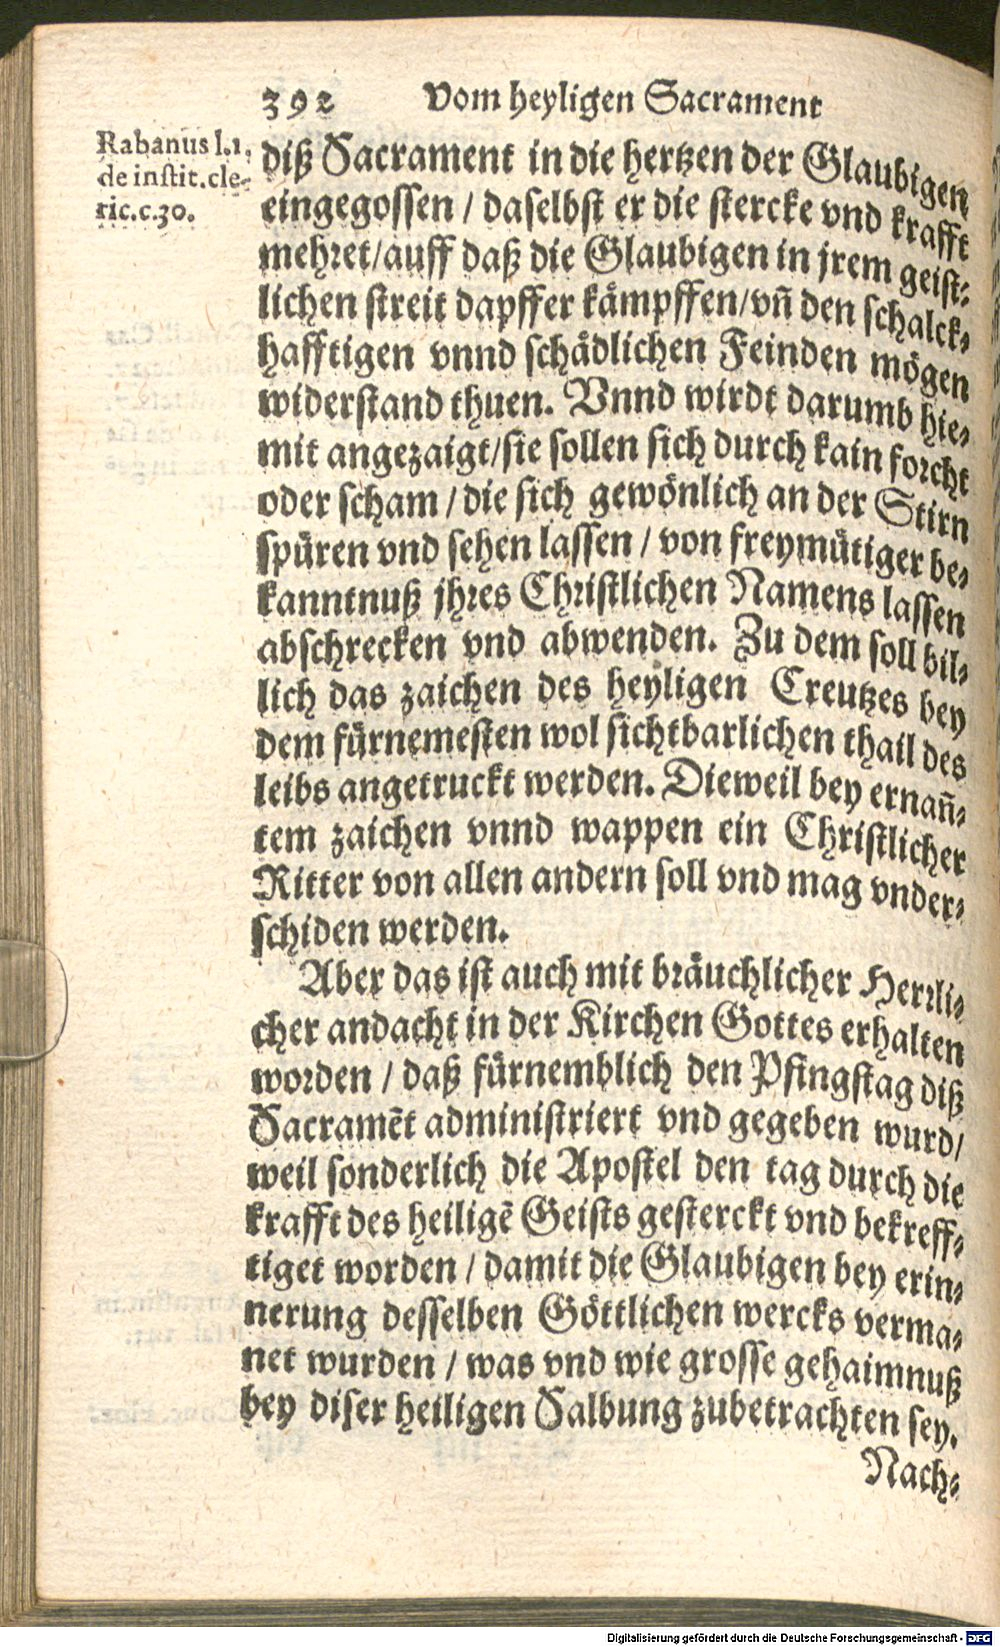 392 Vom heyligen Sacrament
Rabanus l.1.
de instit.cle-
ric.c.30.
diß Sacrament in die hertzen der Glaubigen
eingegossen / daselbst er die stercke vnd krafft
mehret/auff daß die Glaubigen in jrem geist-
lichen streit dapffer kämpffen/vñ den schalck-
hafftigen vnnd schädlichen Feinden mögen
widerstand thuen. Vnnd wirdt darumb hie-
mit angezaigt/sie sollen sich durch kain forcht
oder scham / die sich gewönlich an der Stirn
spüren vnd sehen lassen / von freymütiger be-
kanntnuß jhres Christlichen Namens lassen
abschrecken vnd abwenden. Zu dem soll bil-
lich das zaichen des heyligen Creutzes bey
dem fürnemesten wol sichtbarlichen thail des
leibs angetruckt werden. Dieweil bey ernañ-
tem zaichen vnnd wappen ein Christlicher
Ritter von allen andern soll vnd mag vnder-
schiden werden.
Aber das ist auch mit bräuchlicher Herrli-
cher andacht in der Kirchen Gottes erhalten
worden / daß fürnemblich den Pfingstag diß
Sacramẽt administriert vnd gegeben wurd/
weil sonderlich die Apostel den tag durch die
krafft des heiligẽ Geists gesterckt vnd bekreff-
tiget worden / damit die Glaubigen bey erin-
nerung desselben Göttlichen wercks verma-
net wurden / was vnd wie grosse gehaimnuß
bey diser heiligen Salbung zubetrachten sey.
Nach-
Digitalisierung gefördert durch die Deutsche Forschungsgemeinschaft - DFG